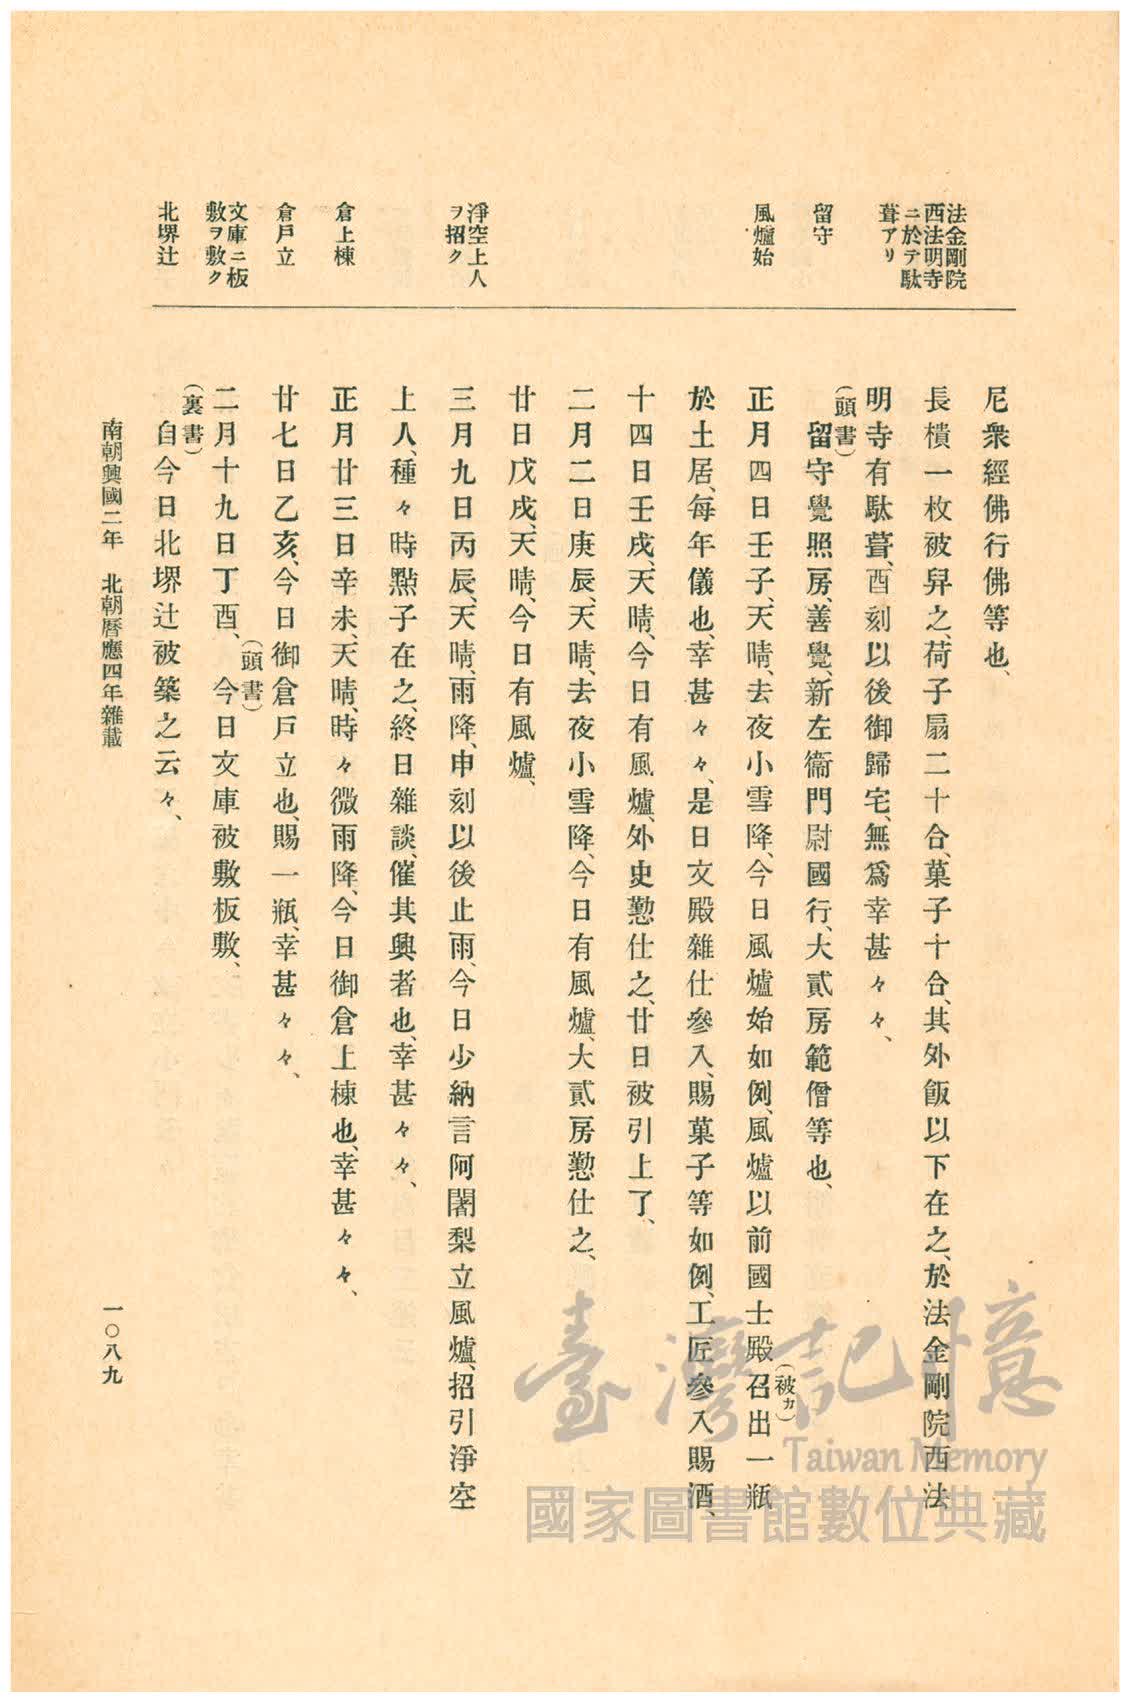 法金剛院
西法明寺
ニ於テ駄
葺アリ
留守
風爐始
淨空上人
ヲ招ク
倉上棟
倉戸立
文庫ニ板
敷ヲ敷ク
北堺辻
尼衆經佛行佛等也、
長樻一枚被舁之、荷子扇二十合、菓子十合、其外飯以下在之、於法金剛院西法
明寺有駄葺、酉刻以後御歸宅、無爲幸甚々々、
(頭書)
留守覺照房、善覺、新左衞門尉國行、大貳房範僧等也、
正月四日壬子、天晴、去夜小雪降、今日風爐始如例、風爐以前國士殿召出一瓶
(被カ)
於土居、每年儀也、幸甚々々、是日文殿雜仕參入、賜菓子等如例、工匠參入賜酒、
十四日壬戌、天晴、今日有風爐、外史懃仕之、廿日被引上了、
二月二日庚辰、天晴、去夜小雪降、今日有風爐、大貳房懃仕之、
廿日戊戌、天晴、今日有風爐、
三月九日丙辰、天晴、雨降、申刻以後止雨、今日少納言阿闍梨立風爐、招引淨空
上人、種々時點子在之、終日雜談、催其興者也、幸甚々々、
正月廿三日辛未、天晴、時々微雨降、今日御倉上棟也、幸甚々々、
廿七日乙亥、今日御倉戸立也、賜一瓶、幸甚々々、
(頭書)
二月十九日丁酉、今日文庫被敷板敷、
(裏書)
自今日北堺辻被築之云々、
南朝興國二年 北朝曆應四年雜載
一〇八九
臺灣記憶
Taiwan Memory
國家圖書館數位典藏